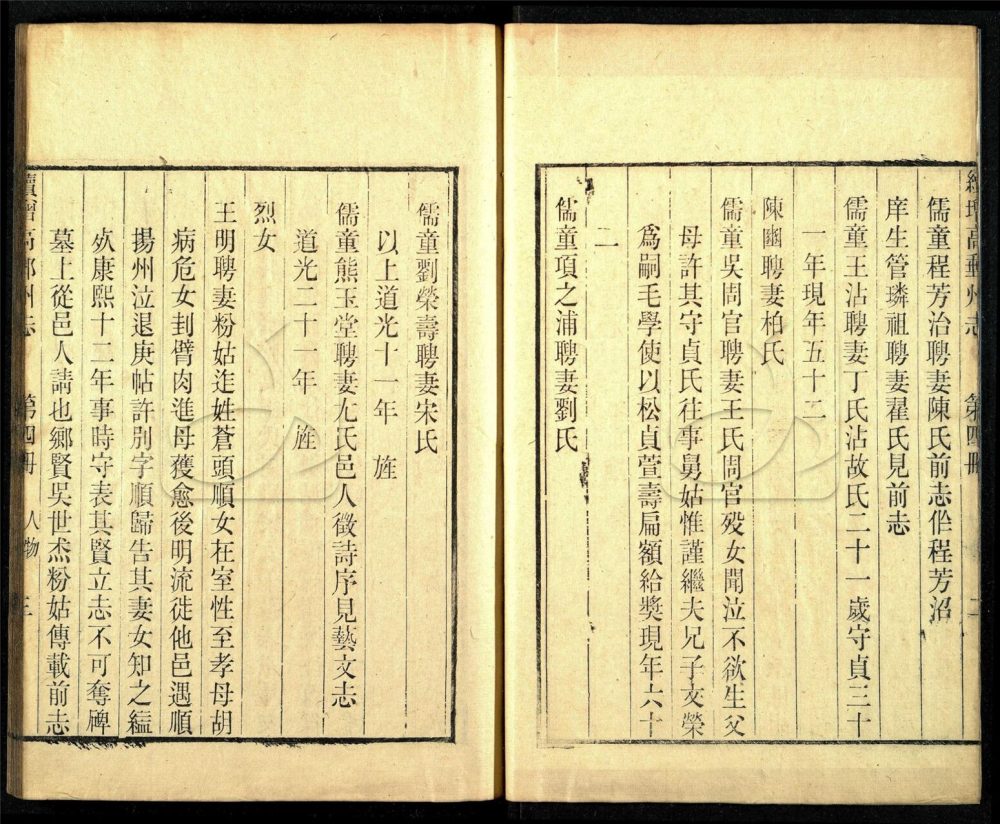 續增高郵州志 第四冊 二
儒童程芳治聘妻陳氏前志作程芳沼
庠生管璘祖聘妻翟氏見前志
儒童王沾聘妻丁氏沾故氏二十一歲守貞三十
一年現年五十二
陳豳聘妻柏氏
儒童吳周官聘妻王氏周官歿女聞泣不欲生父
母許其守貞氏往事舅姑惟謹繼夫兄子文榮
爲嗣毛學使以松貞萱壽扁額給獎現年六十
二
儒童項之浦聘妻劉氏
儒童劉榮壽聘妻宋氏
以上道光十一年 旌
儒童熊玉堂聘妻尤氏邑人徵詩序見藝文志
道光二十一年 旌
烈女
王明聘妻粉姑迮姓蒼頭順女在室性至孝母胡
病危女刲臂肉進母獲愈後明流徙他邑遇順
揚州泣退庚帖許別字順歸告其妻女知之縊
死康熙十二年事時守表其賢立志不可奪碑
墓上從邑人請也鄉賢吳世杰粉姑傳載前志
續增高郵州志 第四冊 人物 三